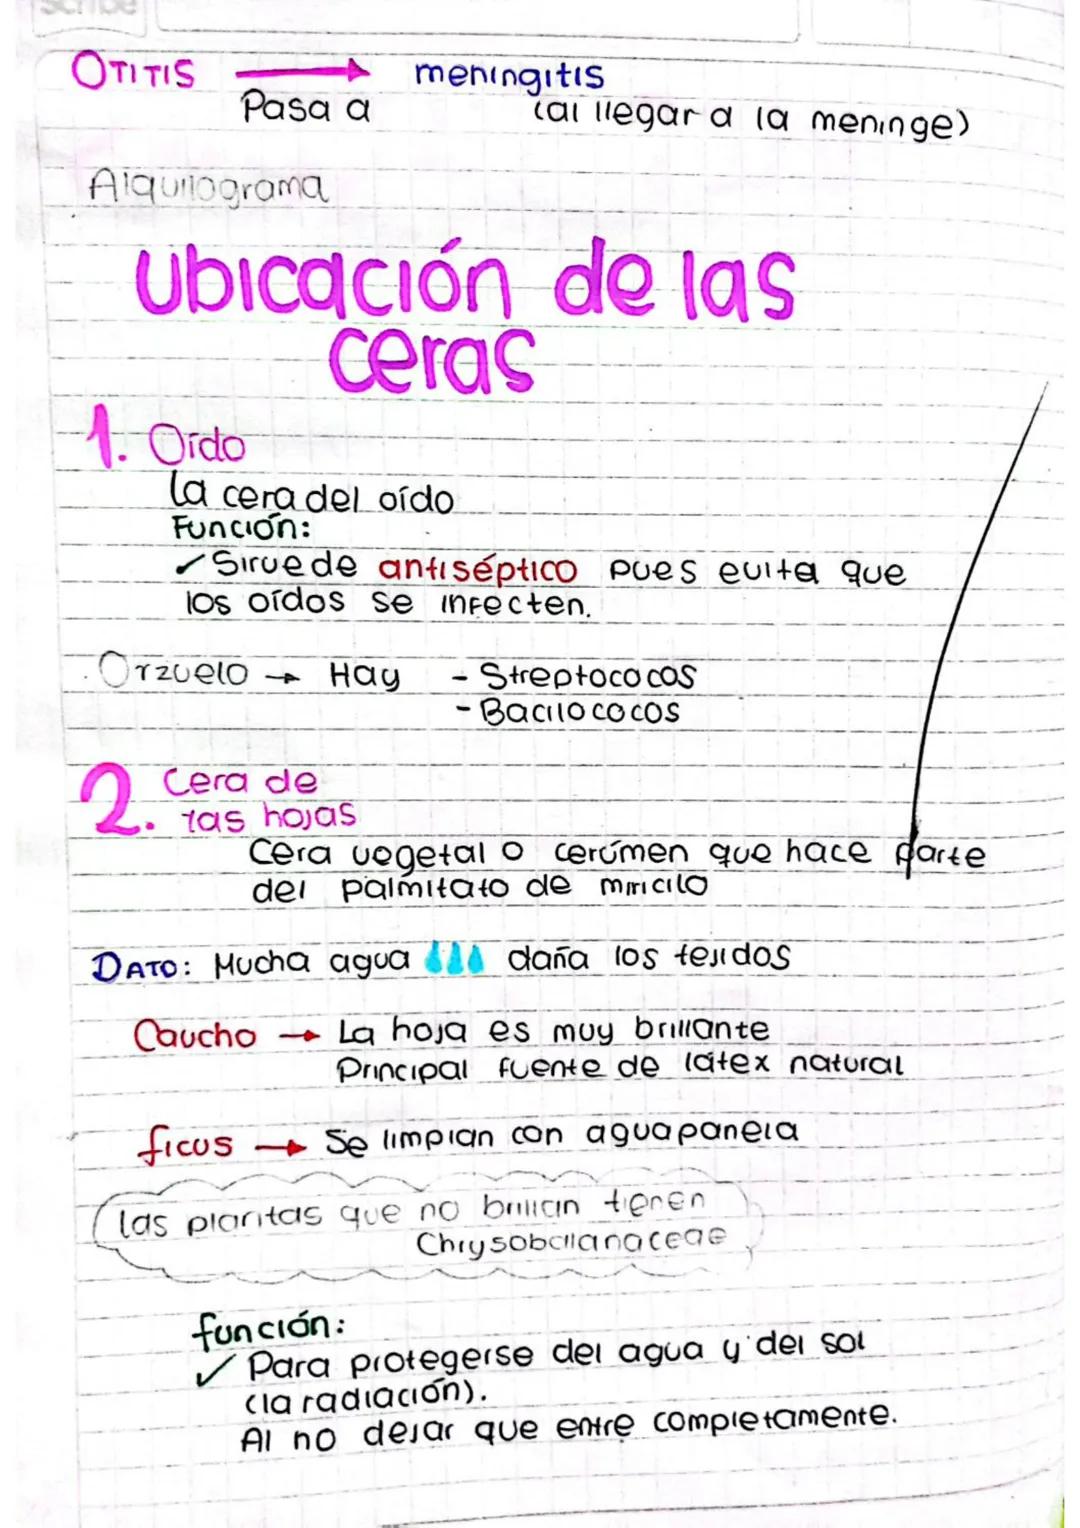 Scribe
OTITIS → meningitis
Pasa a (al llegar a la meninge)
Alquilograma
Ubicación de las
ceras
1. Oído
La cera del oído
Función:
✓ Sirve de antiséptico pues evita que
los oídos se infecten.
Orzuelo → Hay - Streptococos
- Bacilococos
2. Cera de
las hojas
Cera vegetal o cerúmen que hace parte
del palmitato de miricilo
DATO: Mucha agua daña los tejidos
Caucho → La hoja es muy brillante
Principal fuente de látex natural
ficus → Se limpian con aguapanela
las plantas que no brillan tienen
Chrysobalanaceae
función:
✓ Para protegerse del agua y del sol
(la radiación).
Al no dejar que entre completamente.